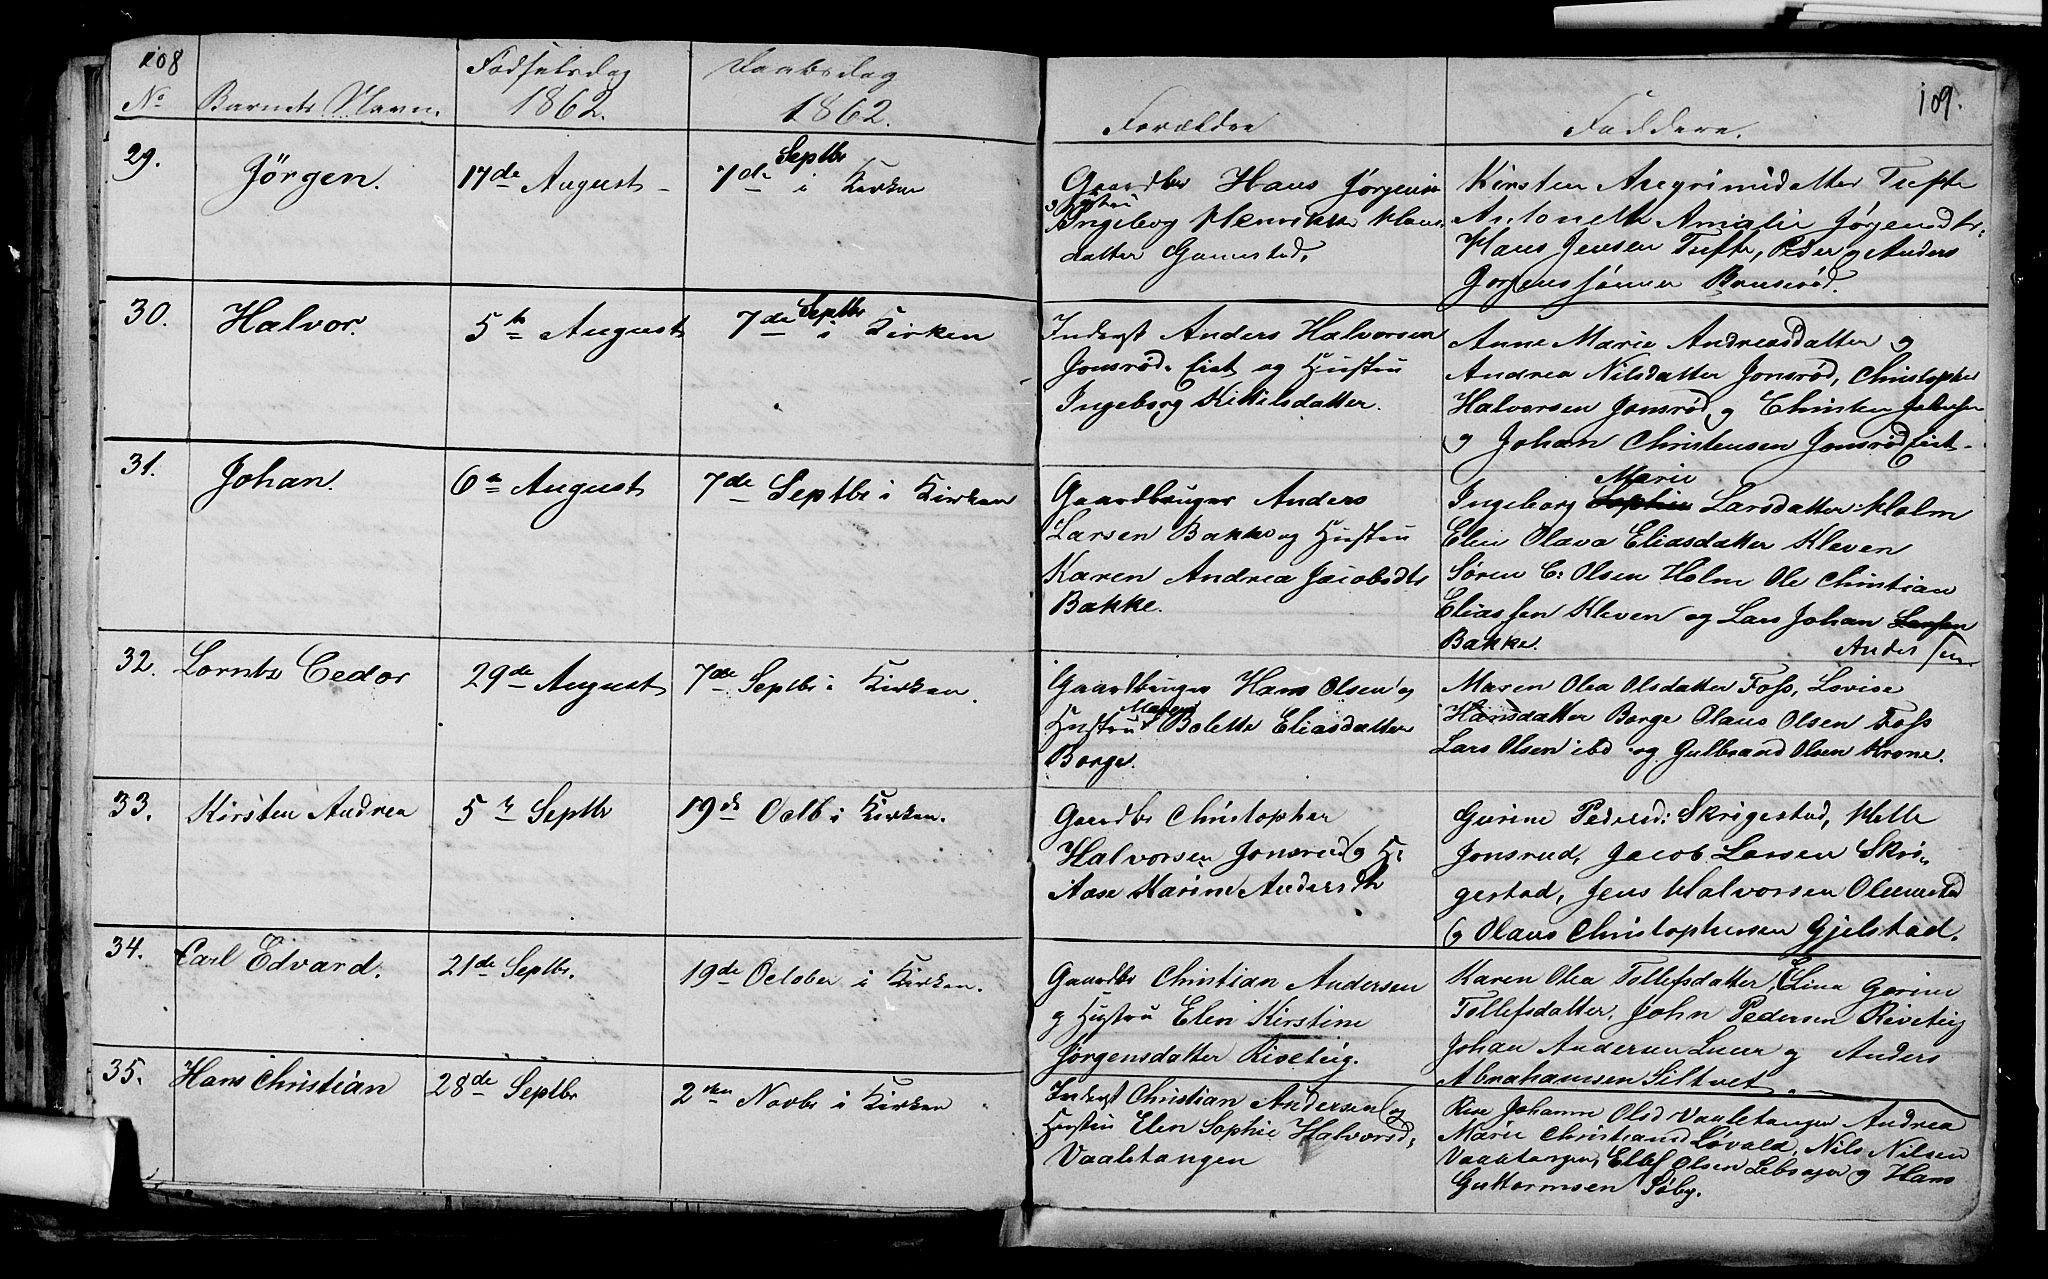 108
109.
No Barnets Navn.
Fødselsdag
1862.
Daabsdag
1862.
Forældre
Faddere.
29.
Jörgen.
17de August
7de Septbr i Kirken
Gaardbr Hans Jörgensen
og Hustru
Ingeborg Henrikke Hans
datter Gamestad.
Kirsten Aregrimsdatter Tufte
Antonette Amalie Jörgensdtr:
Hans Jensen Tufte, Peder og Anders
Jörgenssönner
30.
Halvor.
5te August
7de Septbr i Kirken
Inderst Anders Halvorsen
Jonsrød. Eiet og Hustru
Ingeborg Kittilsdatter.
Anne Marie Andreasdatter og
Andrea Nilsdatter Jonsrød, Christopher
Halvorsen Jonsrød, og Christen
og Johan Christensen Jonsrød Eiet
31.
Johan.
6te August
7de Septbr i Kirken
Gaardbruger Anders
Larsen Bakke og Hustru
Karen Andrea Jacobsdtr
Bakke.
Marie
Ingeborg Sophie Larsdatter Holm
Elen Olava Eliasdatter Kleven
Søren C: Olsen Holm Ole Christian
Eliassen Kleven og Lars Johan Larsen
Bakke. Anderssen
32.
Lorntz Cedor
29de August
7de Septbr i Kirken
Gaardbruger Hans Olsen og
Hustru Maren Bolette Eliasdatter
Borge.
Maren Olea Olsdatter Foss, Lovise
Hansdatter Borge Olaus Olsen Foss
Lars Olsen ibd og Gulbrand Olsen Krone.
33.
Kirsten Andrea
5te Septbr
19de Octb i Kirken.
Gaardbr Christopher
Halvorsen Jonsrud og H:
Aase Karine Andersdtr
Gurine Pedersd: Skrigestad, Helle
Jonsrud, Jacob Larsen Skri-
gestad, Jens Halvorsen
og Olaus Christophersen Gjelstad.
34.
Carl Edvard.
21de Septbr.
19de October i Kirken.
Gaardbr Christian Andersen
og Hustru Elen Kirstine
Jørgensdatter Rivetug.
Karen Olea Tollefsdatter, Elina Gorine
Tollefsdatter, John Pedersen Rivetug
Johan Andersen Luur og Anders
Abrahamsen Siltvet.
35.
Hans Christian
28de Septbr
2den Novbr i Kirken
Inderst Christian Andersen og
Hustru Elen Sophie Halvorsd.
Vaaletangen
Johanne Olsd Vaaletangen Andrea
Marie Christiansd Løvald, Nils Nilsen
Vaaletangen, Ellef Olsen og Hans
Guttormsen Søby.